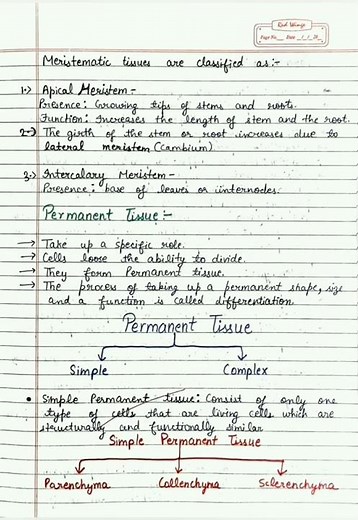 Red Wings
Page No. Date
Meristematic tissues are classified as:-
1.) Apical Meristem-
Presence: Growing tips of stems and roots.
Function: Increases the length of stem and the root.
2) The girth of the stem or root increases due to
lateral meristem (Cambium)
3.) Intercalary Meristem-
Presence: base of leaves or internodes.
Permanent Tissue:-
→ Take up a specific role.
→ Cells loose the ability to divide.
→ They form Permanent tissue.
→ The process of taking up a permanent shape, size
and a function is called differentiation.
Permanent Tissue
Simple Complex
• Simple Permanent tissue: Consist of only one
type of cells that are living cells which are
structurally and functionally similar
Simple Permanent Tissue
Parenchyma Collenchyma Sclerenchyma